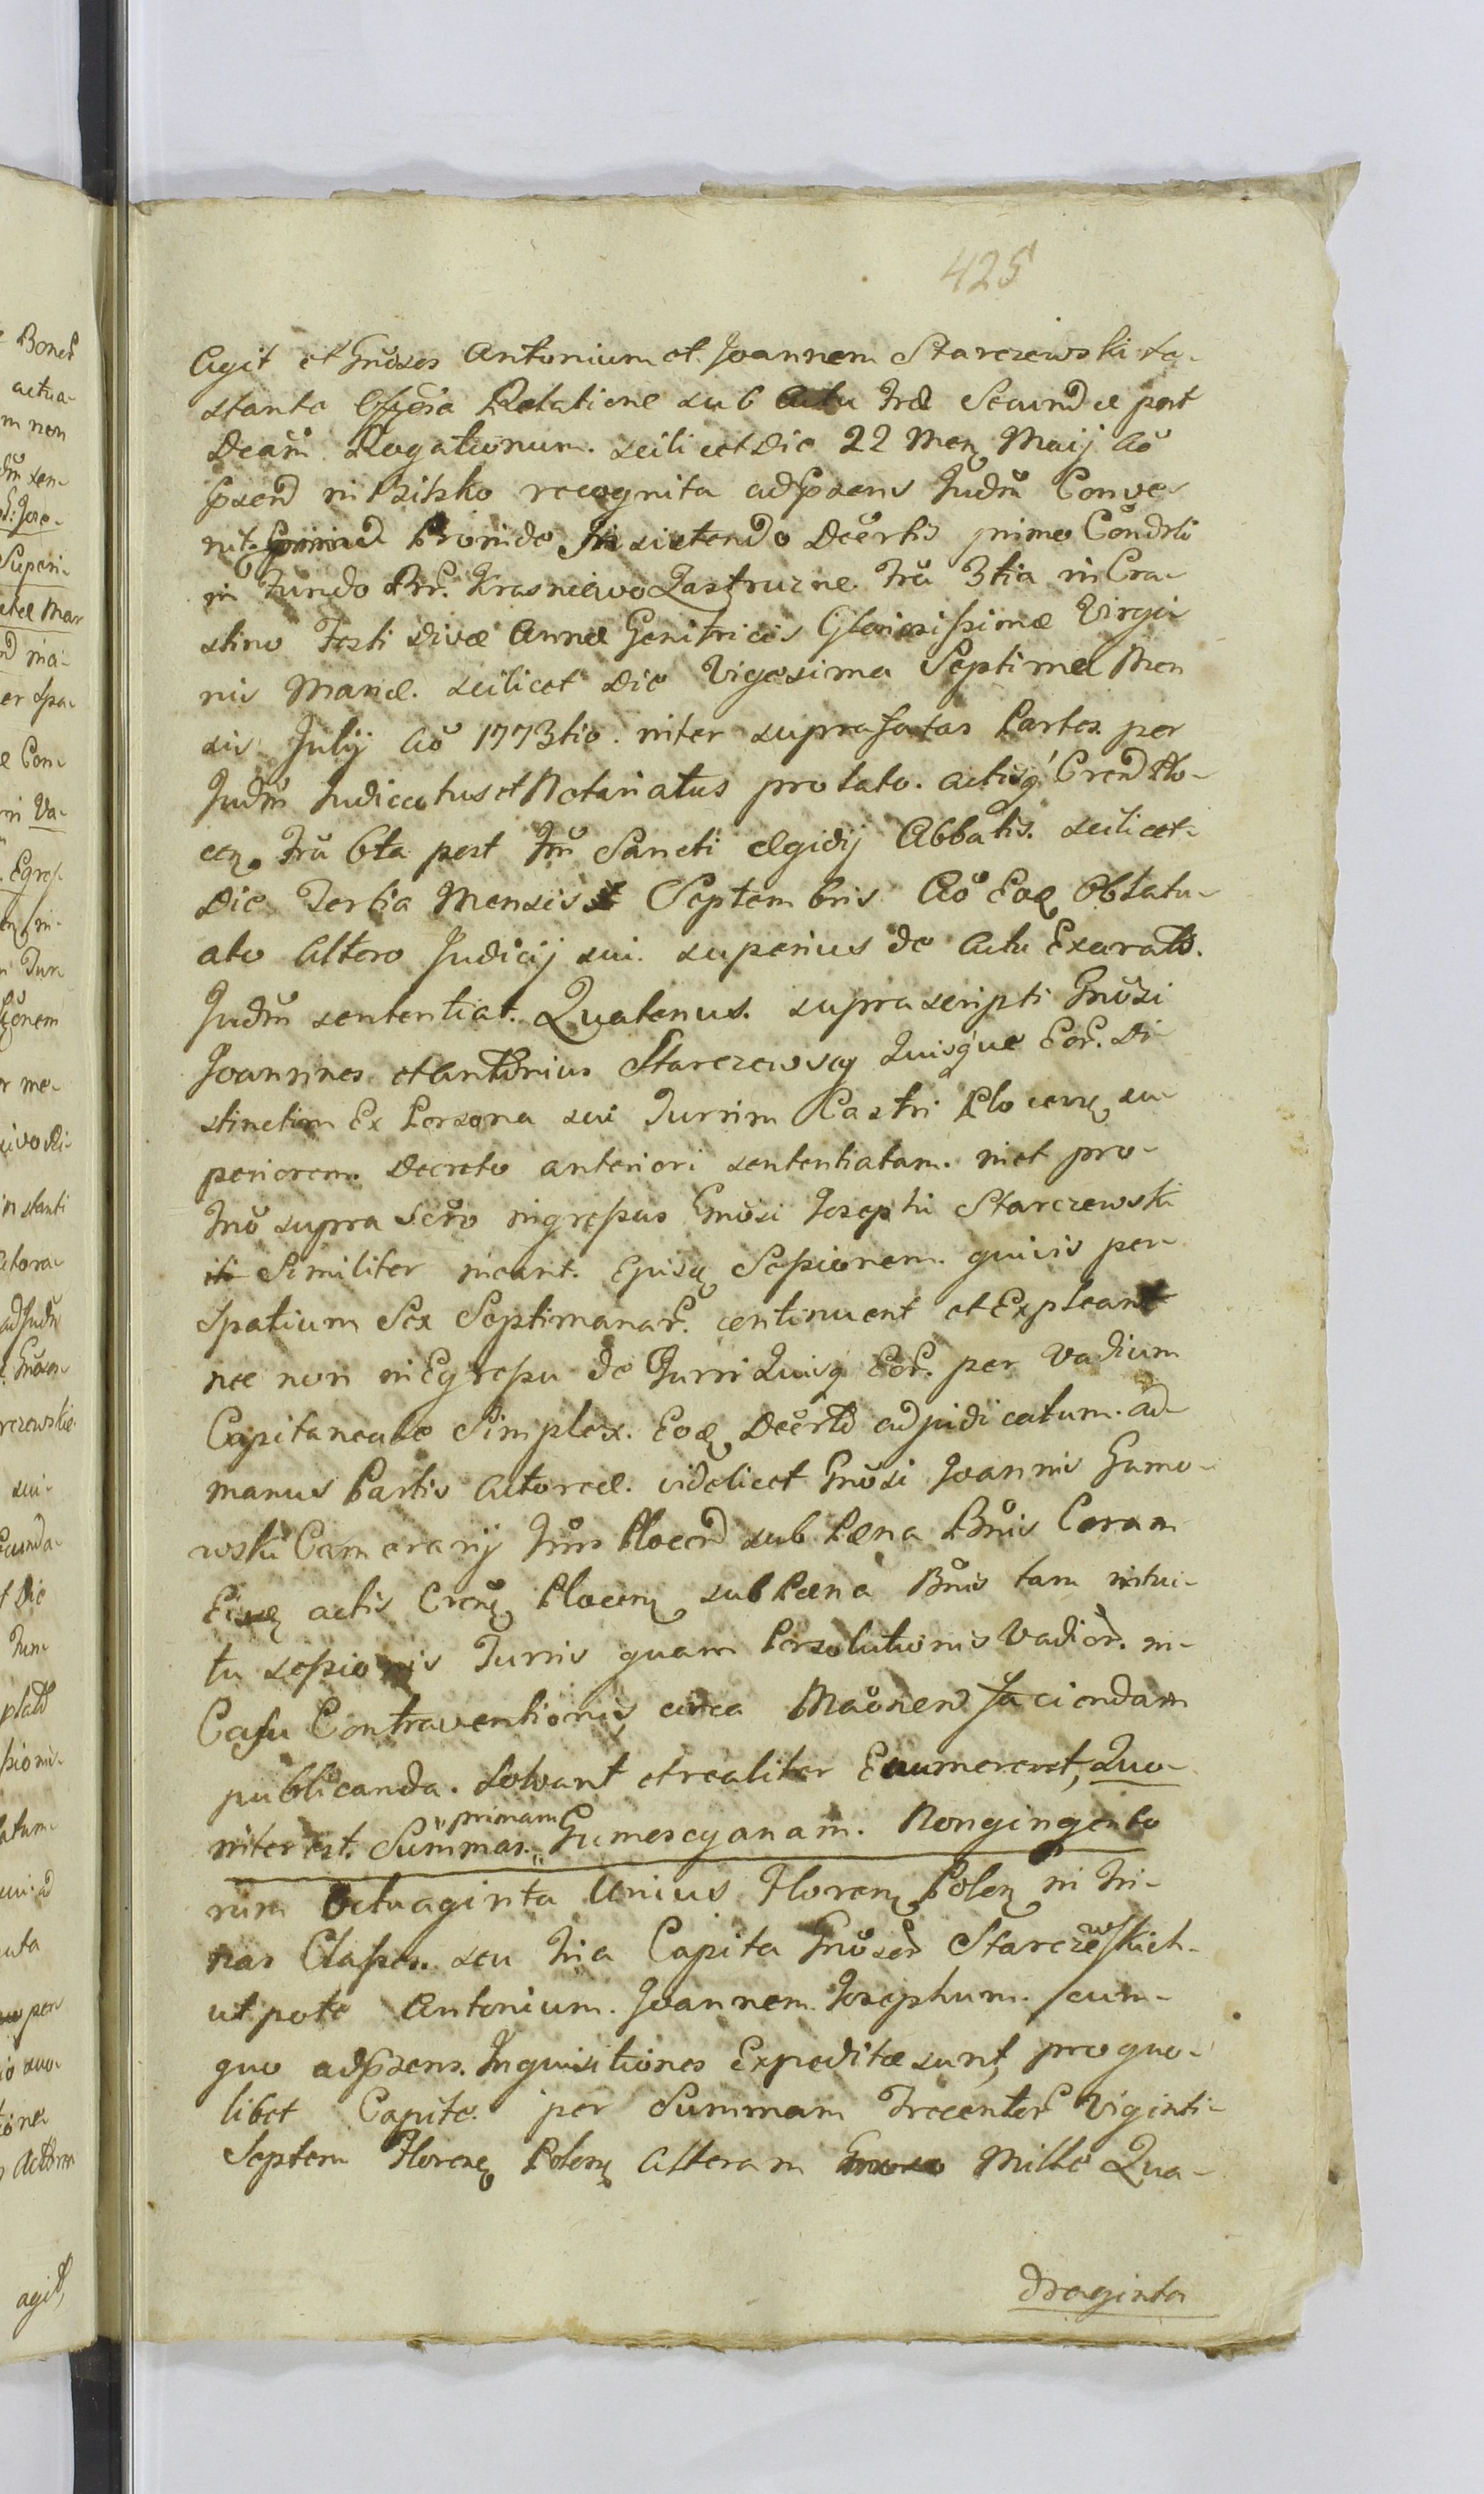 425
Agit et Gnosos Antonium et Joannem Starczewski te-
stante Officiosa Relatione sub Actu Fræ Secundæ post
Dcam Rogationum. scilicet Die 22 Men Maij Ao
Pxend in Bilsko recognita ad Pxens Judm Conve-
nit Proinde Insistendo Decrtis primo Condrli
in Fundo Krasniewo Jastruzne Fra 3tia in Cra-
stino Festi Divæ Annæ Genitricis Gloriosissimæ Virgi-
nis Mariæ. scilicet Die Vigesima Septima Men
sis Julij Ao 1773tio. inter suprafatas Partes per
Judm Judicatus et Notariatus prolato. actisq Crend Plo-
cen. Fra 6ta post Fm Sancti Ægidij Abbatis. scilicet
Die Tertia Mensis Septembris Ao Eoq Oblatu-
ato Altero Judicij sui superius de Actu Exarato.
Judm sententiat. Quatenus. suprascripti Gnosi
Joannes et Antonius Starczewscy Quisque Eor. Di-
stinctim Ex Persona sui Turrim Castri Plocen su-
periorem. Decreto anteriori sententiatam. inet pro-
Fno supra Scro ingressus Gnosi Josephi Starczewski
Similiter ineant. Ejusq Sessionem. quivis per
Spatium Sex Septimanar. continuent et Expleant
nec non in Egressu de Turri Quisq Eor. per Vadium
Capitaneale Simplex. Eoq Decrto adjudicatum. ad
manus Partis Actoreæ. videlicet Gnosi Joannis Gumo-
wski Camerarij Plocen sub Pæna Bnis Coram
Eisq actis Cren Plocen sub Pæna Bnis tam intui-
tu sessionis Turris quam Persolutionis Vadior. in
Casu Contraventionis circa Maonem faciendam
publicanda. Solvant et realiter Enumerent, Quo-
niter est. Summas. "primam Gumoscyanam. Nongingento
rum Octuaginta Unius Floren Polon in Tri-
nas Classes. seu Tria Capita Gnosor Starczewskich
ut pote Antonium. Joannem. Josephum. /cum-
quo ad Pxens. Inquisitiones Expeditæ sunt, pro quo-
libet Capite. per Summam Trecentor Viginti-
Septem Floren Polon Alteram Mille Qua-
draginta